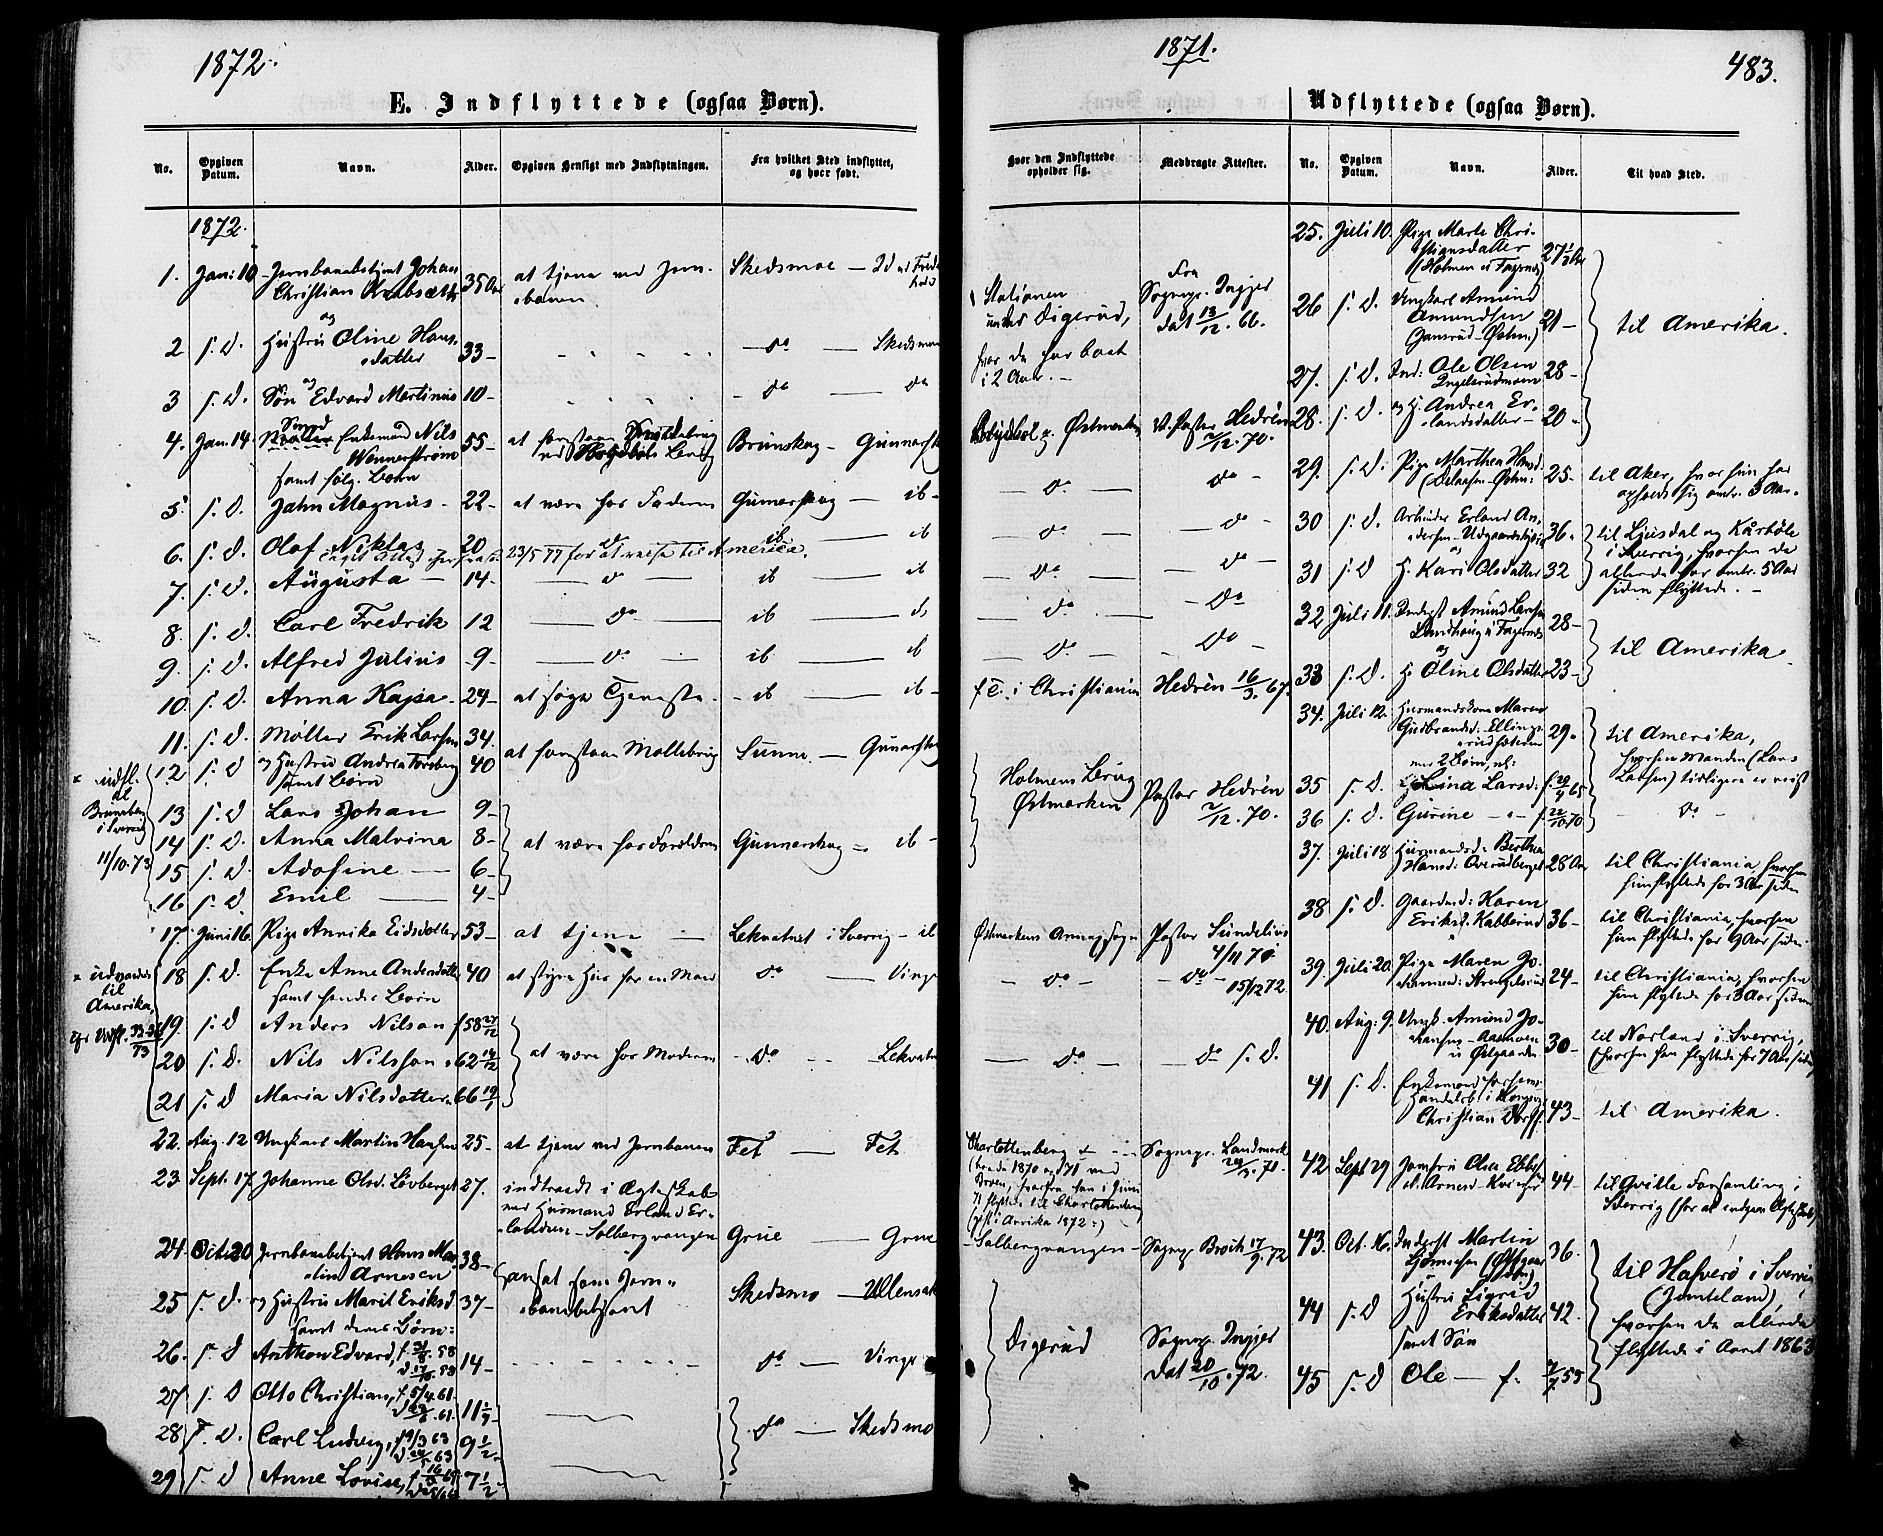 1872.
E. Indflyttede (ogsaa Børn).
No.
Opgiven Datum.
Navn.
Alder.
Opgiven Hensigt med Indflytningen.
Fra hvilket Sted indflyttet, og hvor født.
1872.
1. Jan: 10 Jernbanebetjent Johan Christian 35 Aar at tjene ved Jernbanen Skedsmoe
2 s. d. og Hustru Oline Hansdatter 33 – do — Skedsmoe
3 s. d. og Søn Edvard Martinus 10 – do — do
4. Jan. 14. Enkemand Nils Wennerstrøm 55 – at forestaae Brunskog – Gunnarskog
samt følg. Børn
5. s. d. Jahn Magnus – 22 – at være hos Faderen Gunnarskog — ib –
6. s. d. Olof Niklas 20 ib — ib
23/5 77 for at reise til Amerika.
7. s. d. Augusta — 14 – do — ib — ib
8. s. d. Carl Fredrik 12 — do — ib — ib
9. s. d. Alfred Julius 9 – do — ib — ib
10. s. d. Anna Kajsa – 24 – at søge Tjeneste. – ib — ib –
11. s. d. Møller Erik Larsen 34. at forestaae Møllebrug Sunne – Gunnarskog
12. s. d og Hustru Andrea Forsberg 40
samt Børn
13 s. d Lars Johan 9 –
14 s. d. Anna Malvina 8 – at være hos Forældrene Gunnarskog – ib –
15 s. d. Adofine — 6 –
16 s. d. Emil — 4 –
udfl. til
i Sverrig
11/10.73
17. Juni 16. Pige Annika Eidsdatter 53 – at tjene — Lekvatnet i Sverrig – ib
18 s. d. Enke Anne Andersdatter 40 at styre Hus for en Mand do — Vinger
samt hendes Børn
19. s. d Anders Nilson f 58 27/12
20 s. d. Nils Nilsson " 62 at være hos Moderen – do – – Lekvatn
21 s. d Maria Nilsdatter " 66 19/1
udvandret til Amerika,
22. Aug. 12 Ungkarl Martin Hansen 25 – at tjene ved Jernbanen Fet — Fet
23. Sept. 17. Johanne Olsd. Løvberget 27. indtraadt i Ægteskab med Husmand Erland Erlandsen – Solbergvangen Grue — Grue
24. Oct: 20. Jernbanebetjent Hans Martin Arnesen 38 – ansat som Jernbanebetjent
25 s. d. og Hustru Marit Eriksd 37 – Skedsmo – Ullensak
samt deres Børn:
26. s. d Anthon Edvard, f. 58 14 – do — Vinger
27 s. d Otto Christian, f. 5/4 61. 11 1/2
28 s. d. Carl Ludvig, f 9/3 63 9 1/2 do — Skedsmo
29 s. d Anne Lovise, f. 7 1/2
1871.
483.
Udflyttede (ogsaa Børn).
Hvor den Indflyttede opholder sig.
Medbragte Attester.
No.
Opgiven Datum.
Navn.
Alder.
Til hvad Sted.
Stationen under Digerud, hvor de har boet i 2 Aar. –
Fra Sognepr. Ingier dat 13/12. 66.
Østmarken V. Pastor Hedrén 2/12. 70.
— do — do –
— do — – do –
— do. — – do –
— do — – do
— do — – do
f. t. i Christiania Hedrén 16/3. 67.
Holmens Brug Østmarken Pastor Hedrén 2/12. 70.
Østmarkens Annexsogn Pastor Sundelius 4/11 71.
— do – do – 15/12 72
— do — do s. d.
Charlottenberg
(gift i Arvika 1872:)
Sognepr. Landmark
– Solbergvangen – Sognepr Broch 17/9. 72
Digerud Sognepr. Ingier dat 20/10. 72.
25. Juli 10. Pige Marte Christiansdatter (Holmen u Fagernes) 27 1/2 Aar
26 s. d. Ungkarl Amund Amundsen 21 – til Amerika.
27. s. d. Ind: Ole Olsen 28 –
28. s. d. og H. Andrea Erlandsdatter – 20 –
29. s. d. Pige Marthea Hansd 25 – til Aker, hvor hun har opholdt sig omtr. 3 Aar.
30 s. d. Arbeider Erland Andersen 36. til Ljusdal og Kårböle i Sverrig, hvorhen de allerede for omtr. 5 Aar siden flyttede. –
31 s. d og H. Kari Olsdatter 32
32 Juli 11. Inderst Amund Larsen 28 – til Amerika
33 s. d. og H. Oline Olsdatter 23 –
34. Juli 12. Husmandskone Maren Gudbrandsd. 29. til Amerika, hvorhen Manden (Lars Larsen) tidligere er reist
med 2 Børn, nl:
35 s. d. Lina Larsd: f. 65
36 s. d. Gurine – " – f. 22/10.70 – do –
37. Juli 18 Husmandsd: Berthea Hansd: Overudberget 28 Aar til Christiania, hvorhen hun flyttede for 3 Aar siden
38 s. d. Gaardmd: Karen Eriksd. Kabberud 36 – til Christiania, hvorhen hun flyttede for 9 Aar siden.
39. Juli 20. Pige Maren 24 – til Christiania, hvorhen hun flyttede for 3 Aar siden
40. Aug: 9. Ungk. Amund Johansen 30 – til Norland i Sverrig, (hvorhen han flyttede for 7 Aar siden)
41 s. d. Enkemand forhen: Handelsb: i Kongsv: Christian 43 – til Amerika.
42. Sept 29 Jomfru Olea 44 – til Qville Forsamling i Sverrig (for at indgaae Ægteskab)
43. Oct. 16. Inderst Martin 36. til Hafverö i Sverrig (Jemteland), hvorhen de allerede flyttede i Aaret 1863
44 s. d Hustru Sigrid Eriksdatter 42.
samt Søn
45 s. d Ole — f. 55